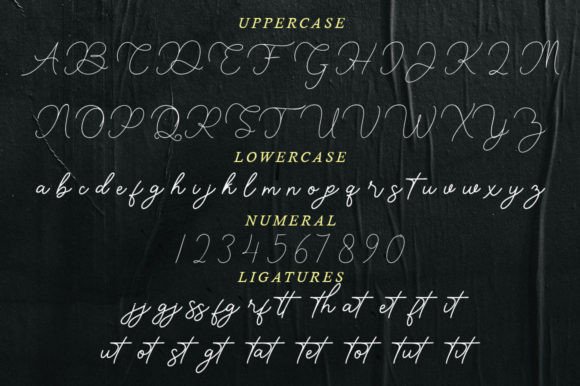 UPPERCASE
A B C D E F G H I J K L M
N O P Q R S T U V W X Y Z
LOWERCASE
a b c d e f g h i j k l m n o p q r s t u v w x y z
NUMERAL
1 2 3 4 5 6 7 8 9 0
LIGATURES
jj gj ss fg rf tt th at et ft it
ut ot st gt tat tet tot tut tit